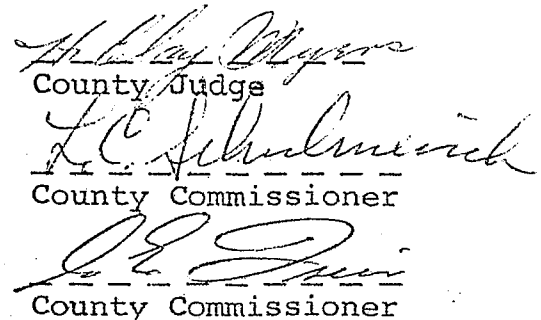 H. Clay Myers
County Judge
L.C. Schulmerich
County Commissioner
E.
County Commissioner